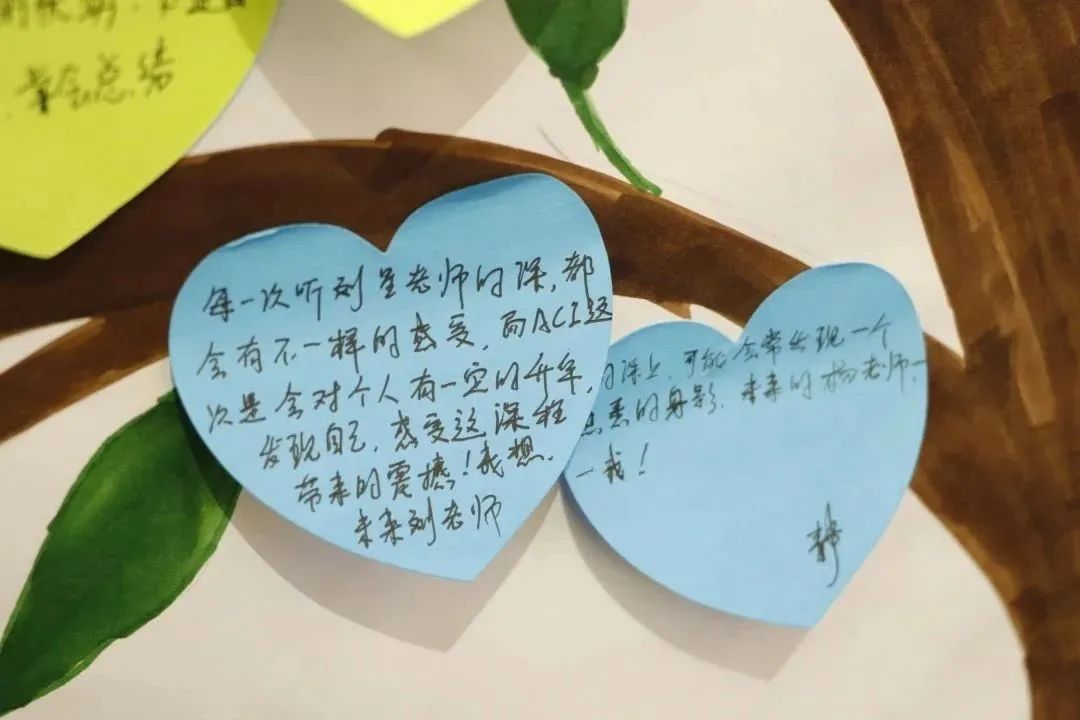 学会总结
每一次听刘呈老师的课,都
会有不一样的感受,而ACI这
次是会对个人有一定的升华,
发现自己,感受这课程
带来的震撼!我想,
未来刘老师
的课上,可能会常出现一个
的身影,未来的杨老师——
—我!
静